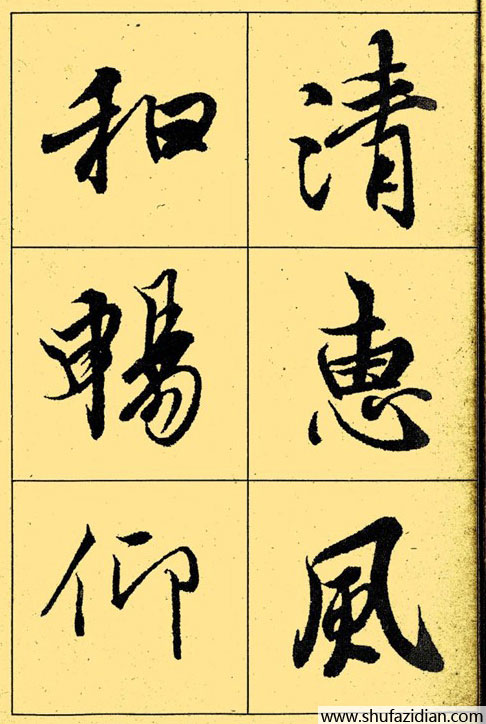 清惠風
和暢仰
www.shufazidian.com